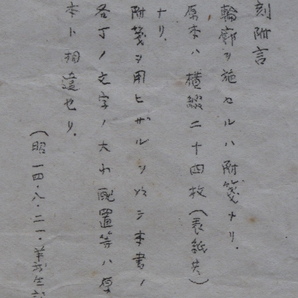 刻附言
輪廓ヲ施セルハ附箋ナリ。
原本ハ横綴二十四枚（表紙共）
ナリ。
附箋ヲ用ヒザル
本書ノ
各丁ノ文字ノ大小配置等ハ原
本ト相違セリ。
（昭一四・八・二一・